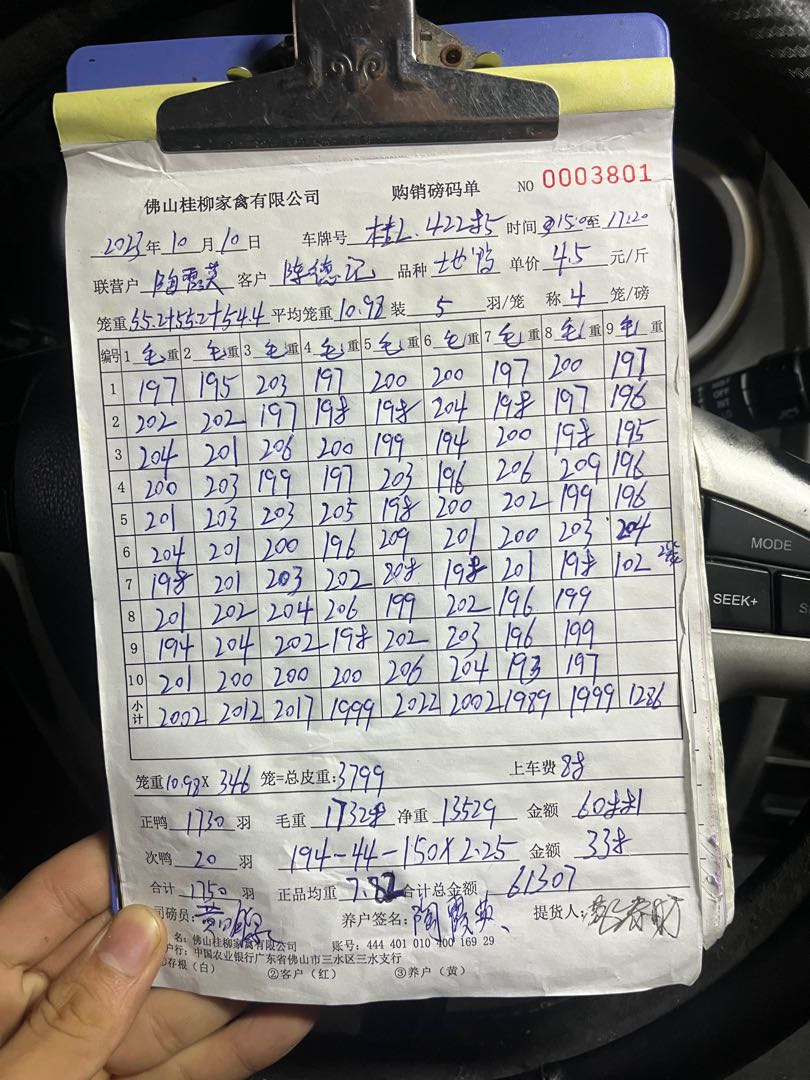 佛山桂柳家禽有限公司 购销磅码单 NO 0003801
2023年10月10日 车牌号 桂L.42285 时间 15:0至17:20
联营户 陶霞英 客户 陈德记 品种 单价 4.5 元/斤
笼重 55.2+55.2+54.4 平均笼重 10.98 装 5 羽/笼 称 4 笼/磅
编号 1 毛重 2 毛重 3 毛重 4 毛重 5 毛重 6 毛重 7 毛重 8 毛重 9 毛重
1 197 195 203 197 200 200 197 200 197
2 202 202 197 198 198 204 198 197 196
3 204 201 206 200 199 194 200 198 195
4 200 203 199 197 203 196 206 209 196
5 201 203 203 205 198 200 202 199 196
6 204 201 200 196 209 201 200 203 204
7 198 201 203 202 208 198 201 198 102 2笼
8 201 202 204 206 199 202 196 199
9 194 204 202 198 202 203 196 199
10 201 200 200 200 206 204 193 197
小计 2002 2012 2017 1999 2022 2002 1989 1999 1286
笼重 10.98 X 346 笼=总皮重: 3799 上车费 88
正鸭 1730 羽 毛重 17328 净重 13529 金额 60881
次鸭 20 羽 194-44-150X2.25 金额 338
合计 1750 羽 正品均重 7.82 合计总金额 61307
司磅员: 养户签名: 陶霞英 提货人:
名: 佛山桂柳家禽有限公司 账号: 444 401 010 400 169 29
户行: 中国农业银行广东省佛山市三水区三水支行
①存根（白） ②客户（红） ③养户（黄）
MODE
SEEK+